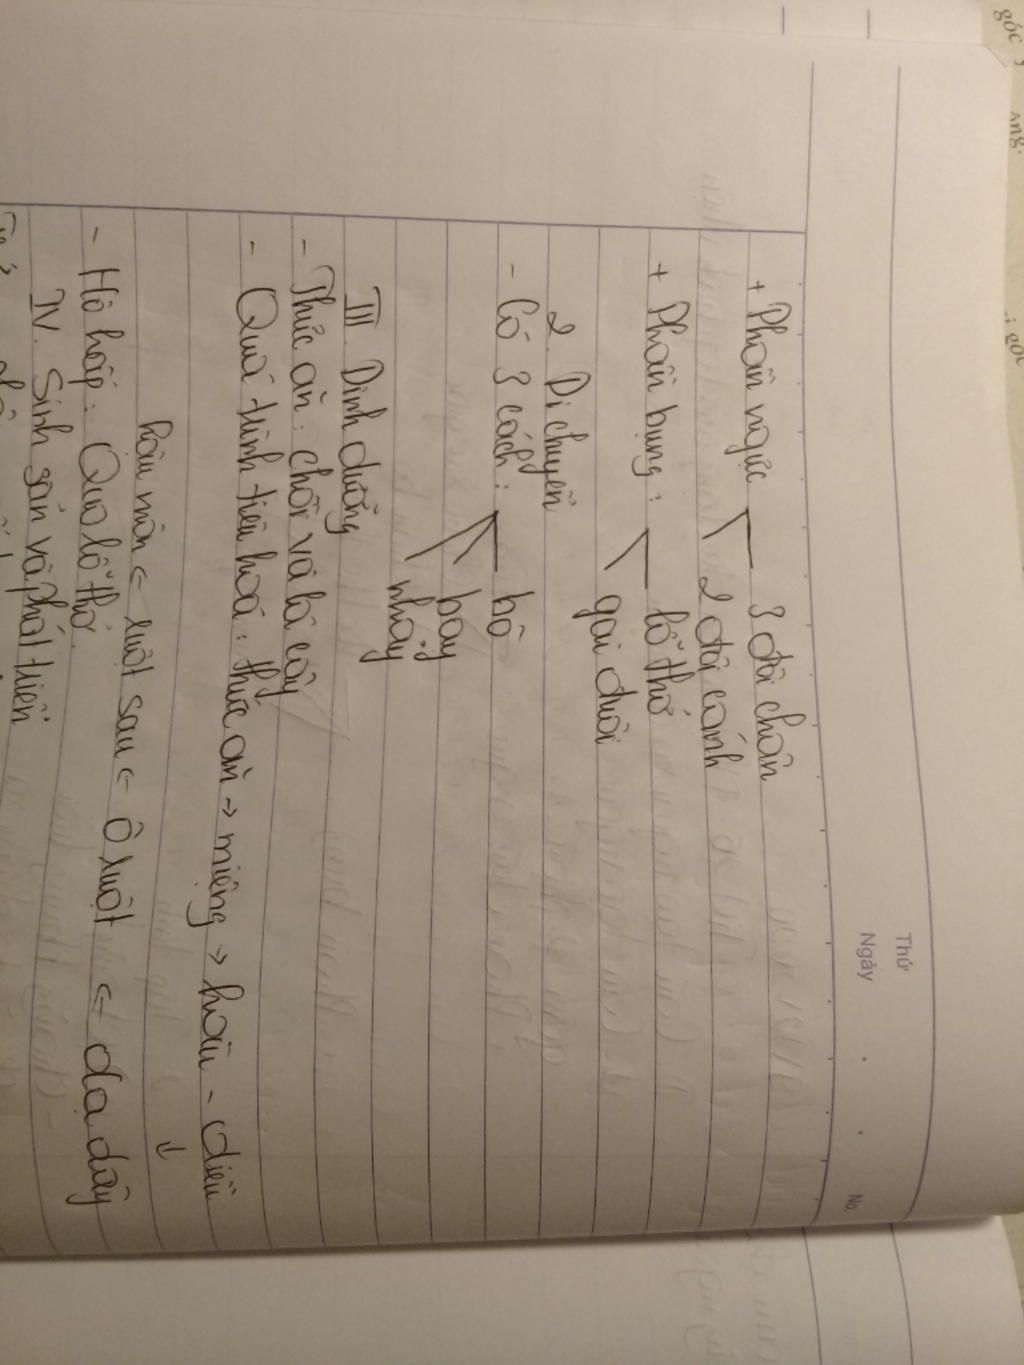 Thứ
Ngày
No.
+ Phần ngực 3 đôi chân
2 đôi cánh
+ Phần bụng: lỗ thở
gai đuôi
2. Di chuyển
- Có 3 cách: bò
bay
nhảy
III. Dinh dưỡng
- Thức ăn: chồi và lá cây
- Quá trình tiêu hoá: thức ăn → miệng → hầu - diều
↓
hậu môn ← ruột sau ← ô ruột ← dạ dày
- Hô hấp: Qua lỗ thở
IV. Sinh sản và phát triển
góc
góc